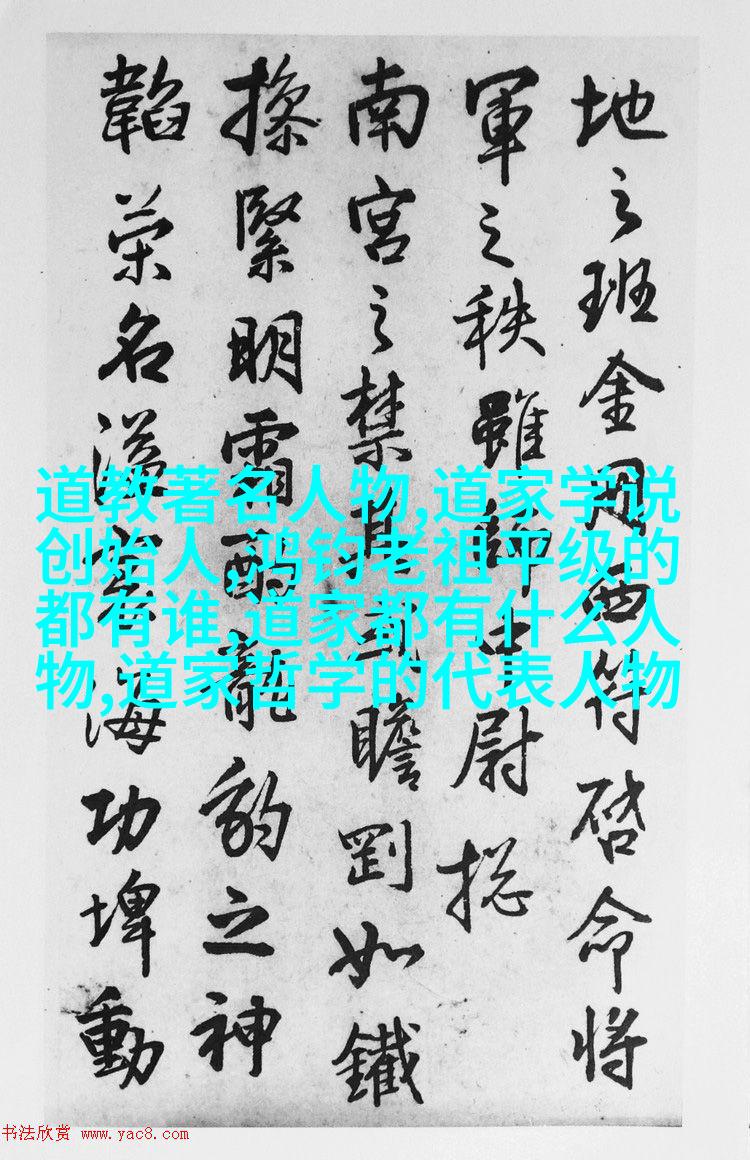 地之班金符啓命將
軍之秩雖中尉摠
南宮之禁瞻剛如鐵
操緊明霜酌龍豹之神
韜榮名溢海功埤動
道教著名人物,道家学说
创始人,鸿钧老祖平级的
都有谁,道家都有什么人
物,道家哲学的代表人物
书法欣赏 www.yac8.com